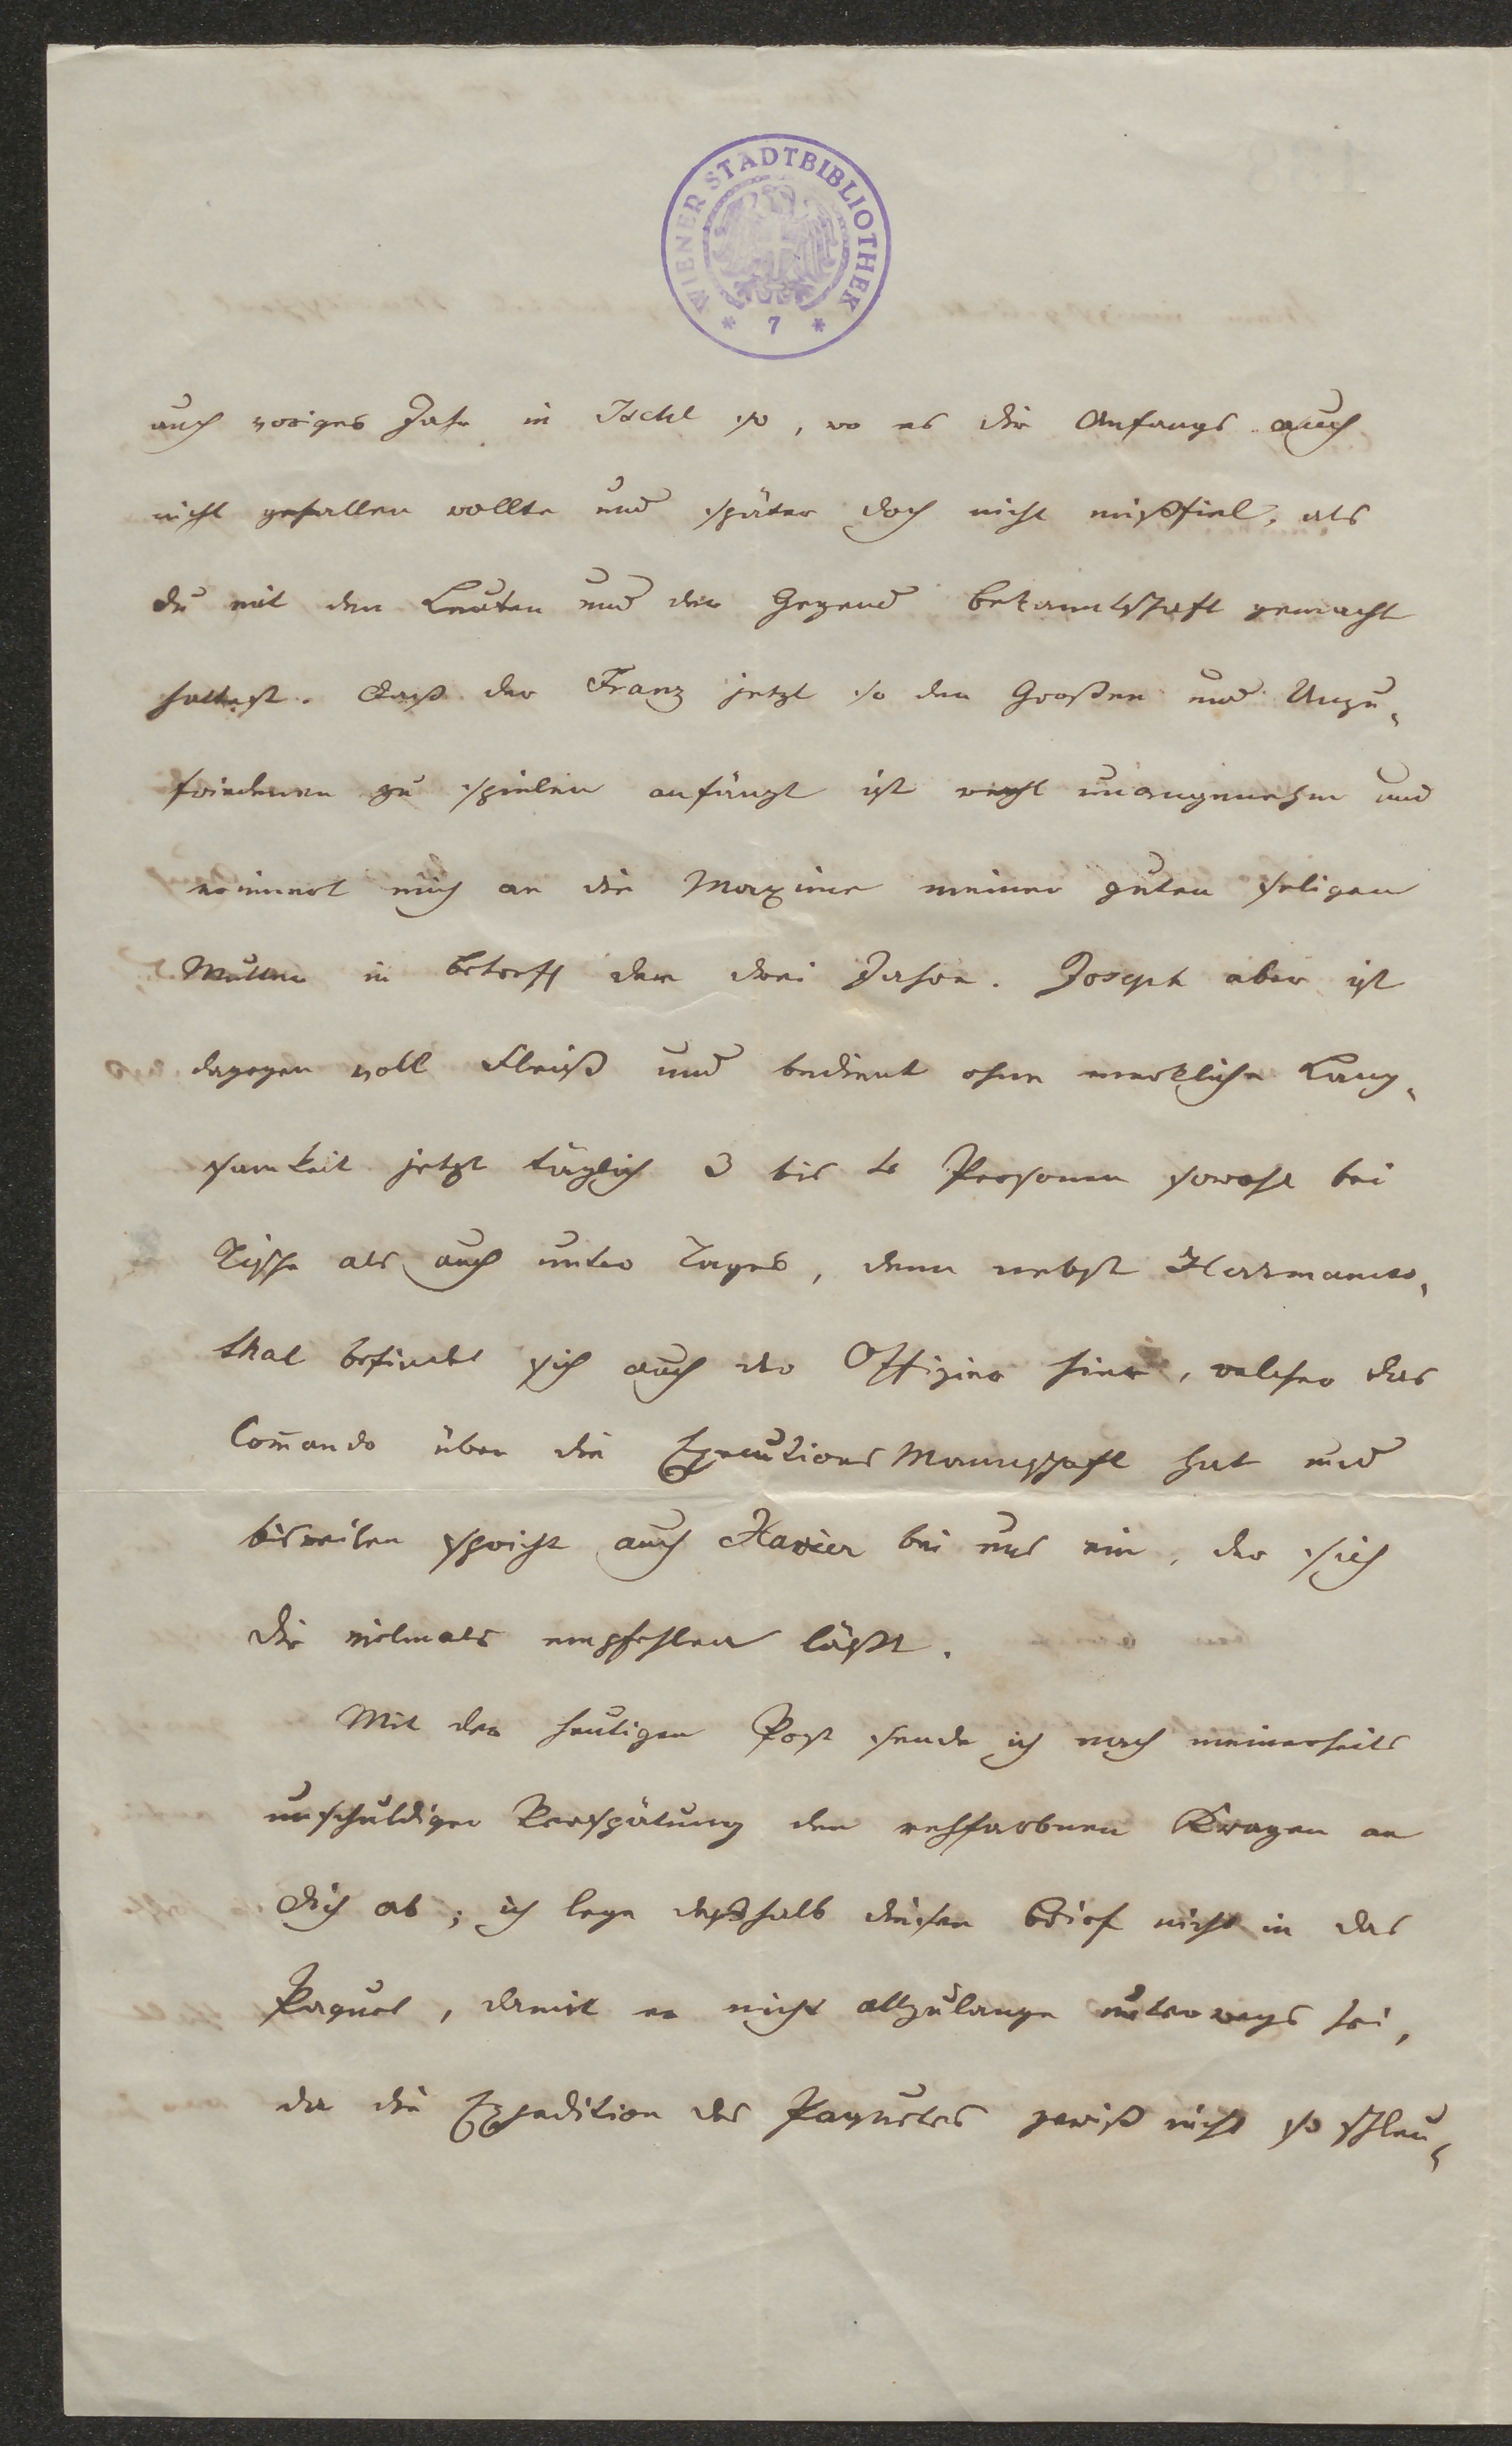 WIENER STADTBIBLIOTHEK
* 7 *
auch voriges Jahr in Ischl so, wo es dir Anfangs auch
nicht gefallen wollte und später doch nicht mißfiel, als
du mit den Leuten und der Gegend bekanntschaft gemacht
hattest. Daß der Franz jetzt so den Großen und Unzu-
friedenen zu spielen anfängt ist recht unangenehm und
erinnert mich an die Maxime meiner guten seligen
Mutter in betreff der drei Jahre. Joseph aber ist
dagegen voll Fleiß und bedient ohne merkliche Lang-
samkeit jetzt täglich 3 bis 4 Personen sowohl bei
Tische als auch unter Tages, denn nebst Herrmanns-
thal befindet sich auch der Offizier hier, welcher das
Com̄ando über die Executions Mannschaft hat und
bisweilen spricht auch Xavier bei uns ein, der sich
dir vielmals empfehlen läßt.
Mit der heutigen Post sende ich nach meinerseits
unschuldiger Verspätung den rehfarbnen Kragen an
dich ab; ich lege deßhalb diesen Brief nicht in das
Paquet, damit er nicht allzulange unterwegs sei,
da die Expedition des Paquetes gewiß nicht so schleu-